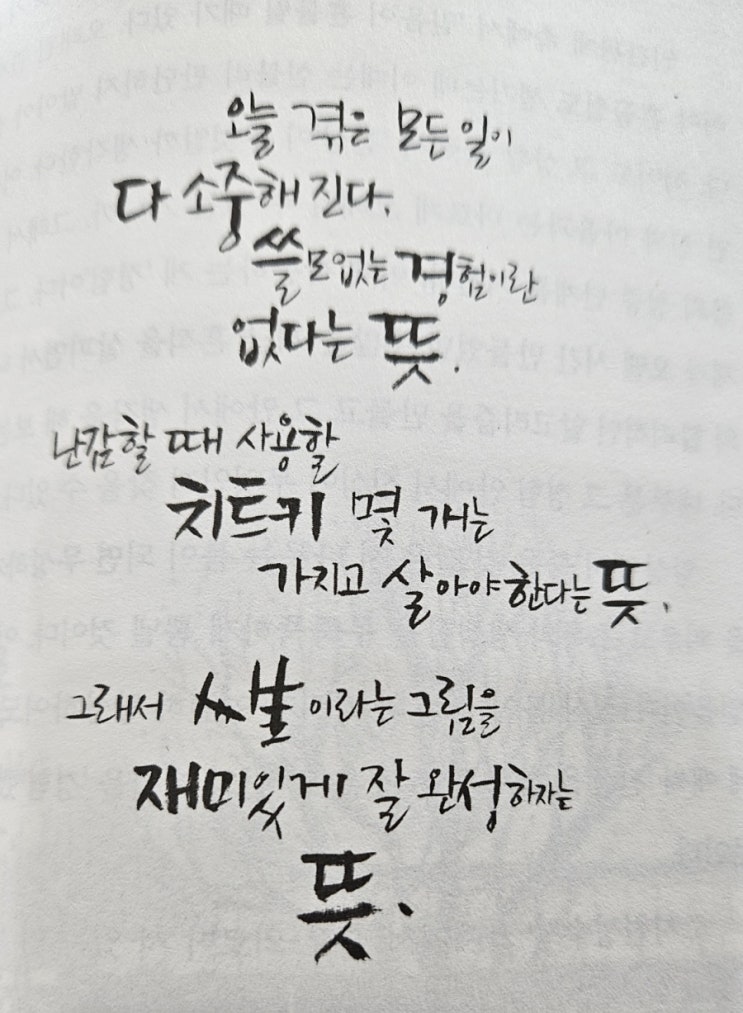 오늘 겪은 모든 일이
다 소중해 진다.
쓸모없는 경험이란
없다는 뜻.
난감할 때 사용할
치트키 몇 개는
가지고 살아야 한다는 뜻.
그래서 人生이라는 그림을
재미있게 잘 완성하자는
뜻.